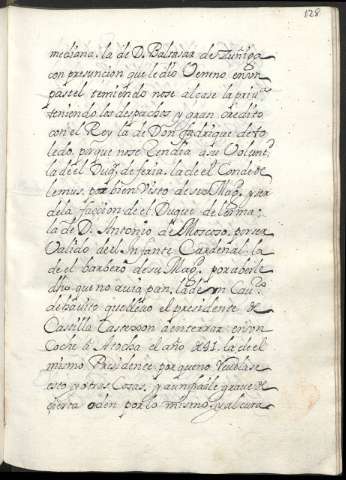 128
mediana. la de D. Baltasar de Zuñiga
con presuncion que le dio Veneno en vn
pastel temiendo no se alçase la priu.ª
teniendo los despachos y gran credito
con el Rey la de Don fadrique de to
ledo, porque no se Rendia a su Volunt.
la del Duq. de feria, la de el Conde de
lemus, por bien Visto de su Mag. y ser
de la faccion de el Duque de lerma;
la de D. Antonio de Moscoso, por ser
Valido del Infante Cardenal la
de el barbero de su Mag. por aberle
dho que no auia pan, la de vn Cau.º
de habito que lleuo el presidente de
Castilla Castejon a enterrar en vn
Coche a Atocha el año de 41. la de el
mismo Presidente porque no Reuelase
esto y otras Cosas, y a un frayle graue de
cierta orden por lo mismo, y al cura